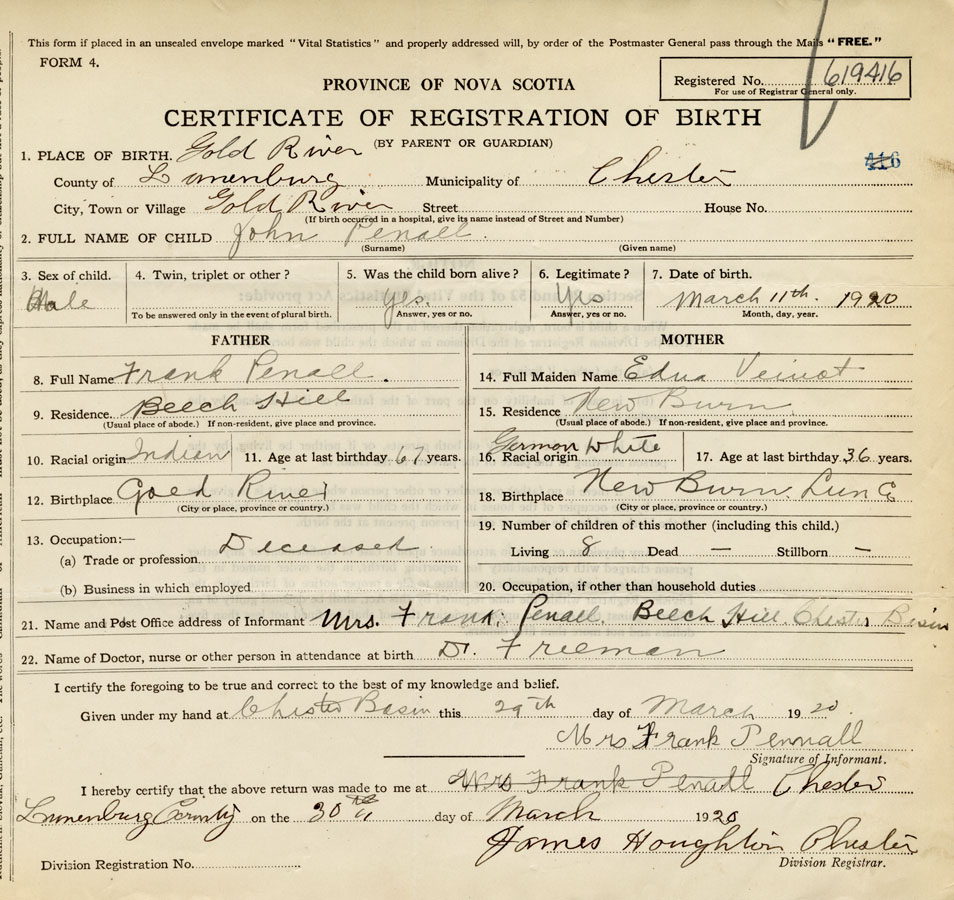 This form if placed in an unsealed envelope marked "Vital Statistics" and properly addressed will, by order of the Postmaster General pass through the Mails "FREE."
FORM 4.
Registered No. 619416
For use of Registrar General only.
PROVINCE OF NOVA SCOTIA
CERTIFICATE OF REGISTRATION OF BIRTH
(BY PARENT OR GUARDIAN)
1. PLACE OF BIRTH. Gold River
416
County of Lunenburg Municipality of Chester
City, Town or Village Gold River Street House No.
(If birth occurred in a hospital, give its name instead of Street and Number)
2. FULL NAME OF CHILD John Penall.
(Surname) (Given name)
3. Sex of child. 4. Twin, triplet or other? 5. Was the child born alive? 6. Legitimate? 7. Date of birth.
Male Yes. Yes March 11th. 1920
To be answered only in the event of plural birth. Answer, yes or no. Answer, yes or no. Month, day, year.
FATHER MOTHER
8. Full Name Frank Penall. 14. Full Maiden Name Edna Veinot
9. Residence. Beech Hill 15. Residence New Burn.
(Usual place of abode.) If non-resident, give place and province. (Usual place of abode.) If non-resident, give place and province.
10. Racial origin Indian 11. Age at last birthday 67 years. 16. Racial origin German White 17. Age at last birthday. 36 years.
12. Birthplace Goed River 18. Birthplace New Burn. Lun C
(City or place, province or country.) (City or place, province or country.)
13. Occupation:— Deceased 19. Number of children of this mother (including this child.)
(a) Trade or profession Living 8 Dead — Stillborn —
(b) Business in which employed 20. Occupation, if other than household duties
21. Name and Post Office address of Informant Mrs. Frank Penall. Beech Hill. Chester Basin
22. Name of Doctor, nurse or other person in attendance at birth Dr. Freeman
I certify the foregoing to be true and correct to the best of my knowledge and belief.
Given under my hand at Chester Basin this 29th day of March 1920.
Mrs Frank Pennall
Signature of Informant.
I hereby certify that the above return was made to me at Mrs Frank Penall Chester
Lunenburg County on the 30th day of March 1920
James Houghton Chester
Division Registration No. Division Registrar.